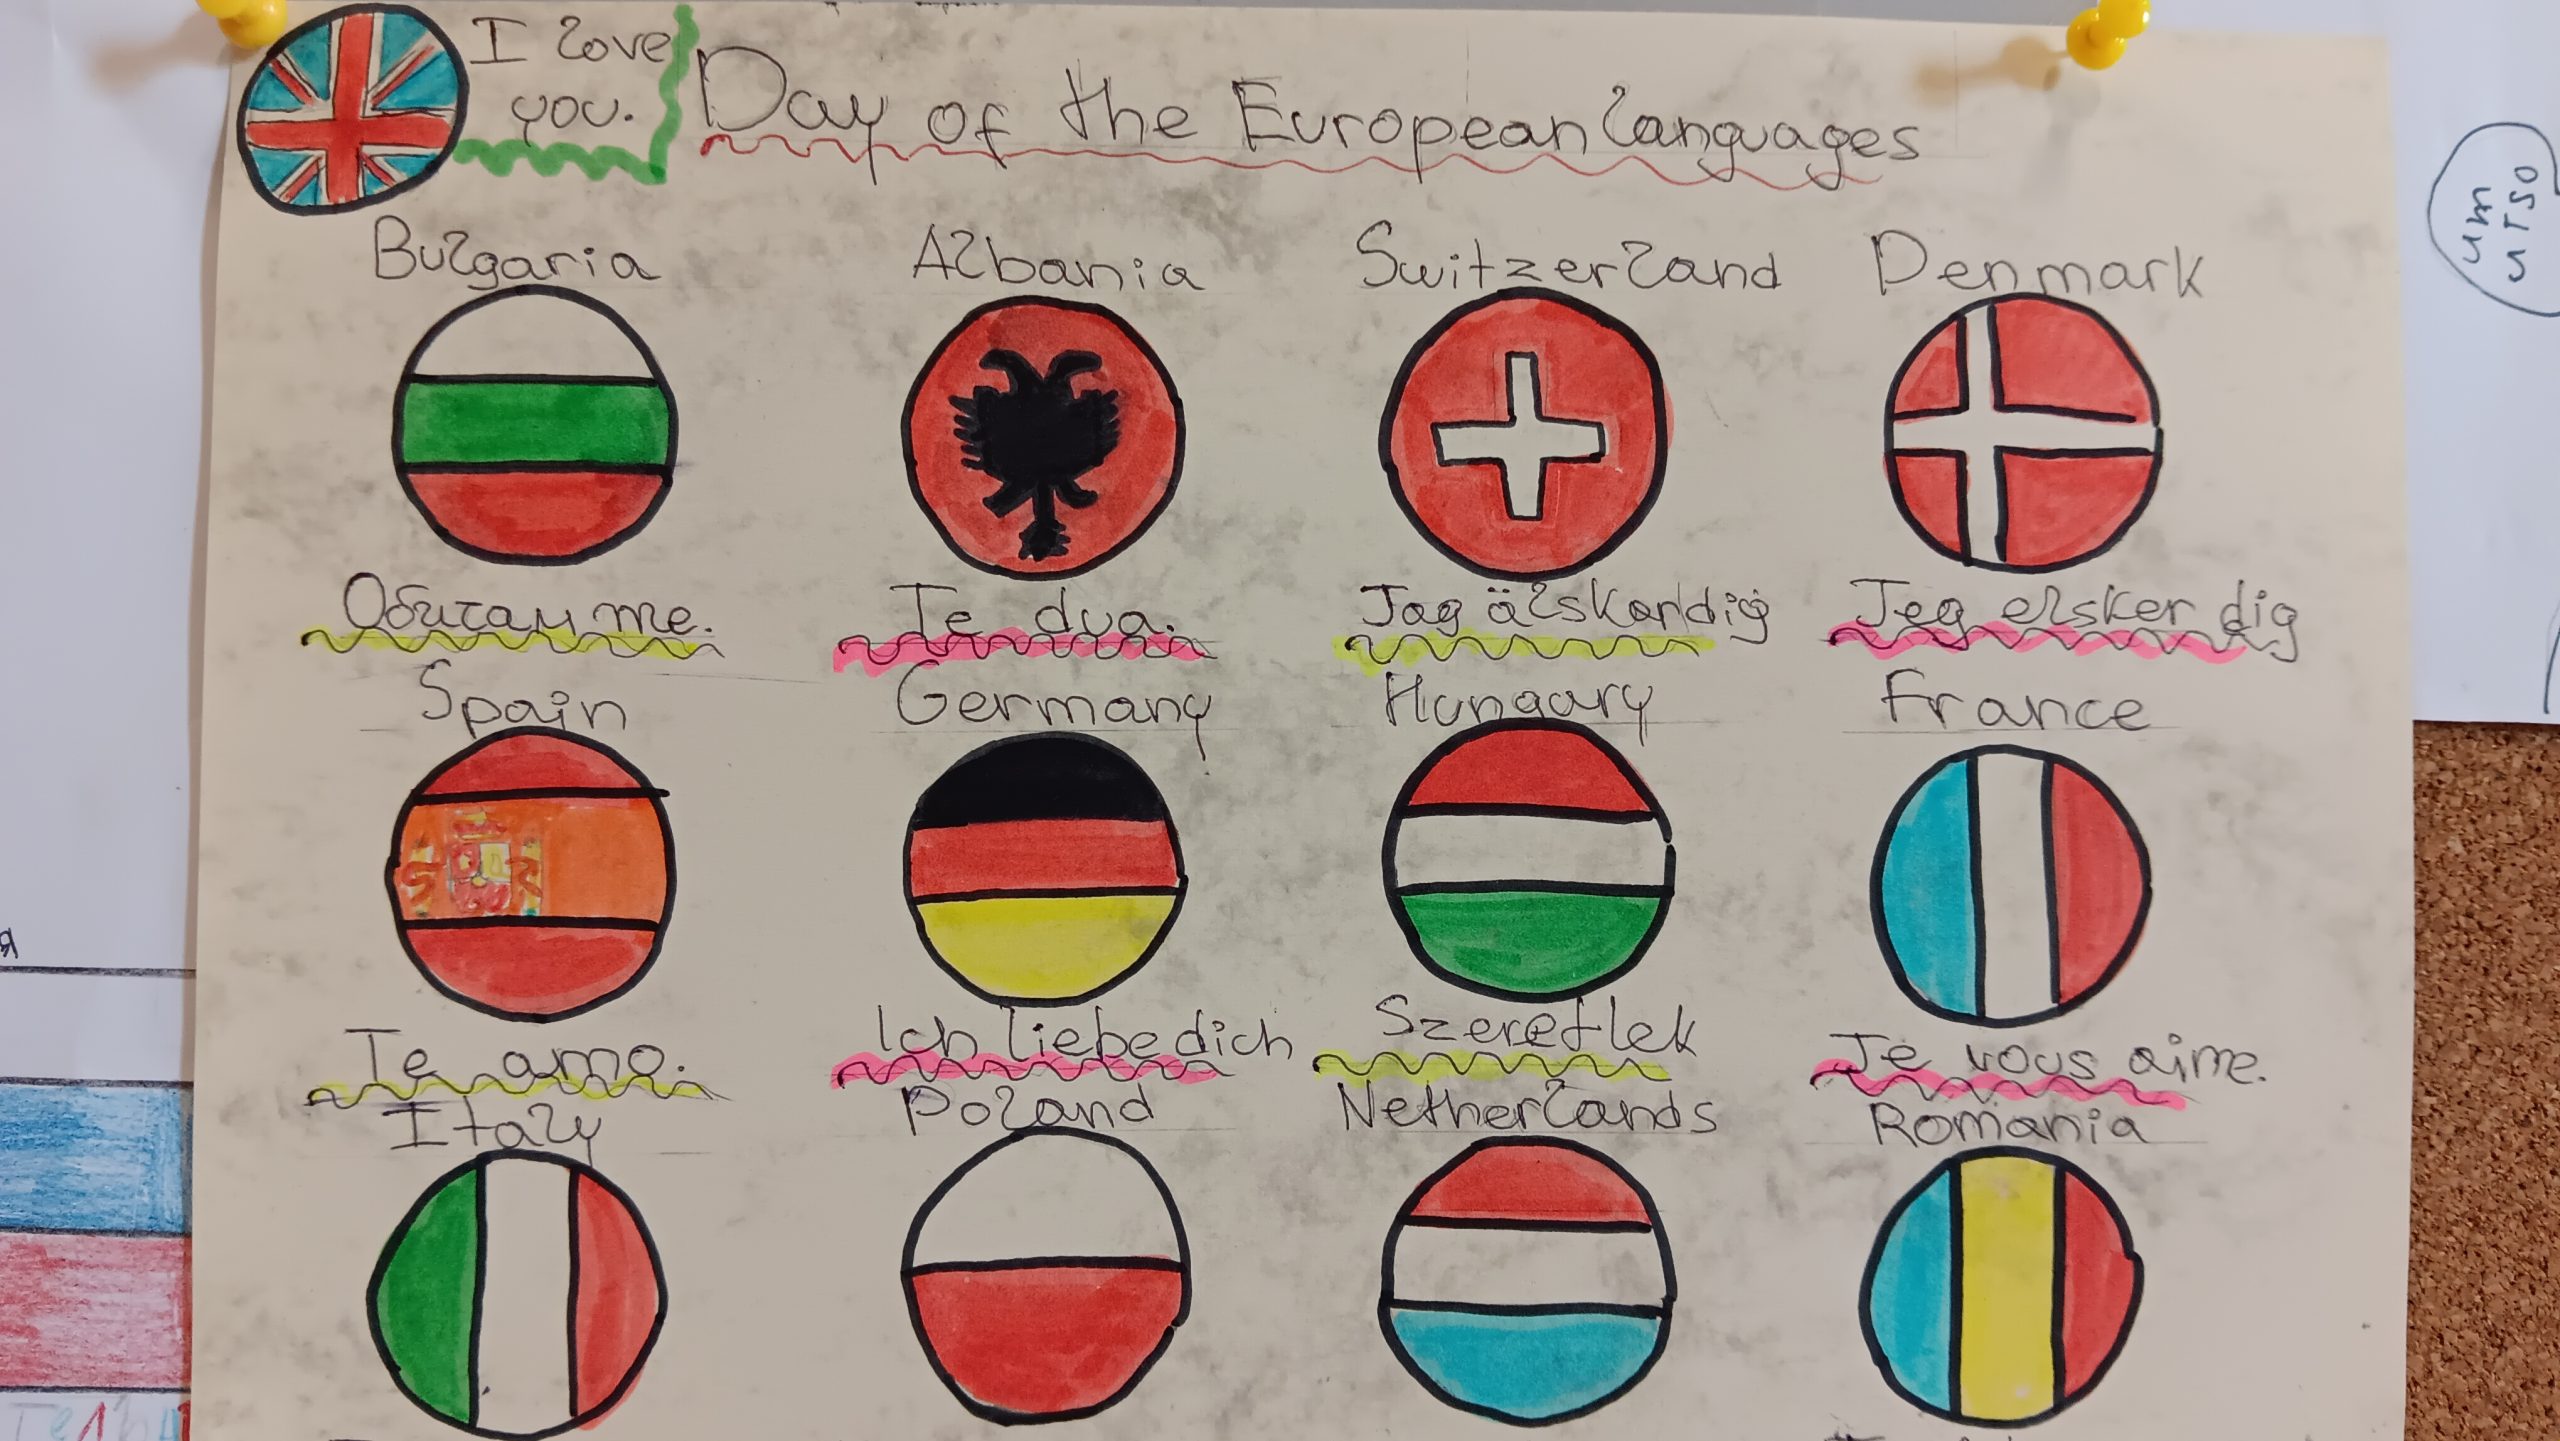 I love
you.
Day of the European languages
Bulgaria
Albania
Switzerland
Denmark
Обичам те.
Te dua.
Jag älskar dig
Jeg elsker dig
Spain
Germany
Hungary
France
Te amo.
Ich liebe dich
Szeretlek
Je vous aime.
Italy
Poland
Netherlands
Romania
um
urso
я